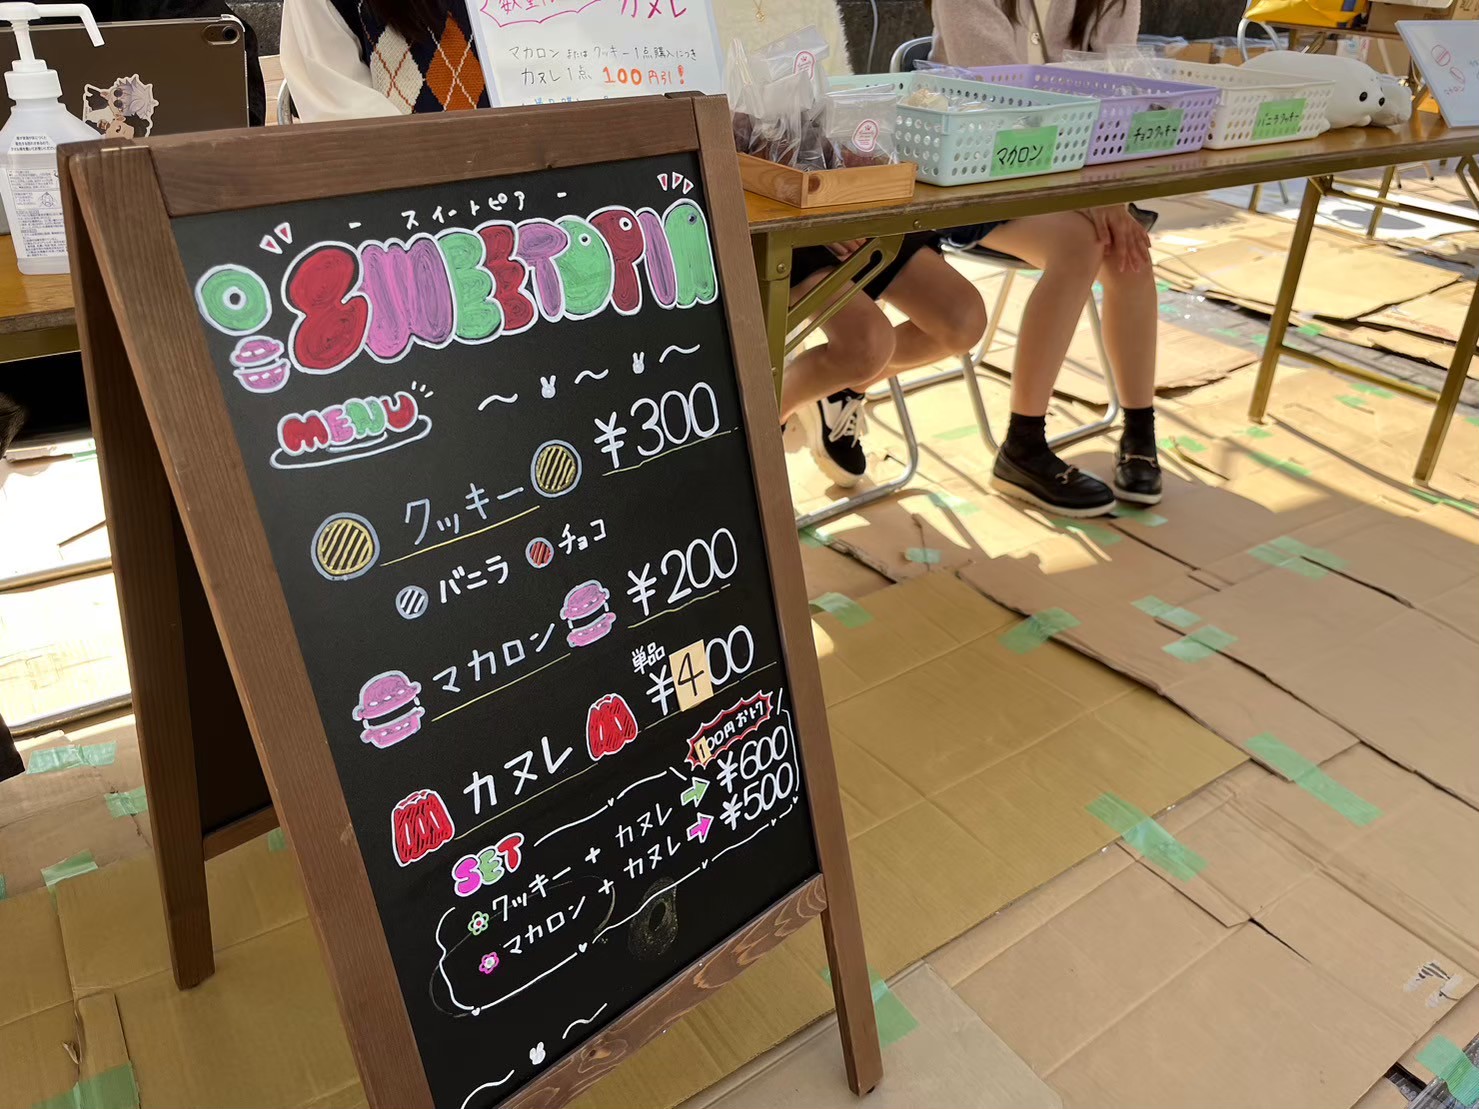 カヌレ
マカロン または クッキー 1点購入につき
カヌレ1点 100円引!
マカロン
チョコクッキー
バニラクッキー
スイートピア
SWEETOPIA
MENU
クッキー ¥300
バニラ チョコ
マカロン ¥200
単品
カヌレ ¥400
100円おトク
SET
クッキー + カヌレ → ¥600
マカロン + カヌレ → ¥500